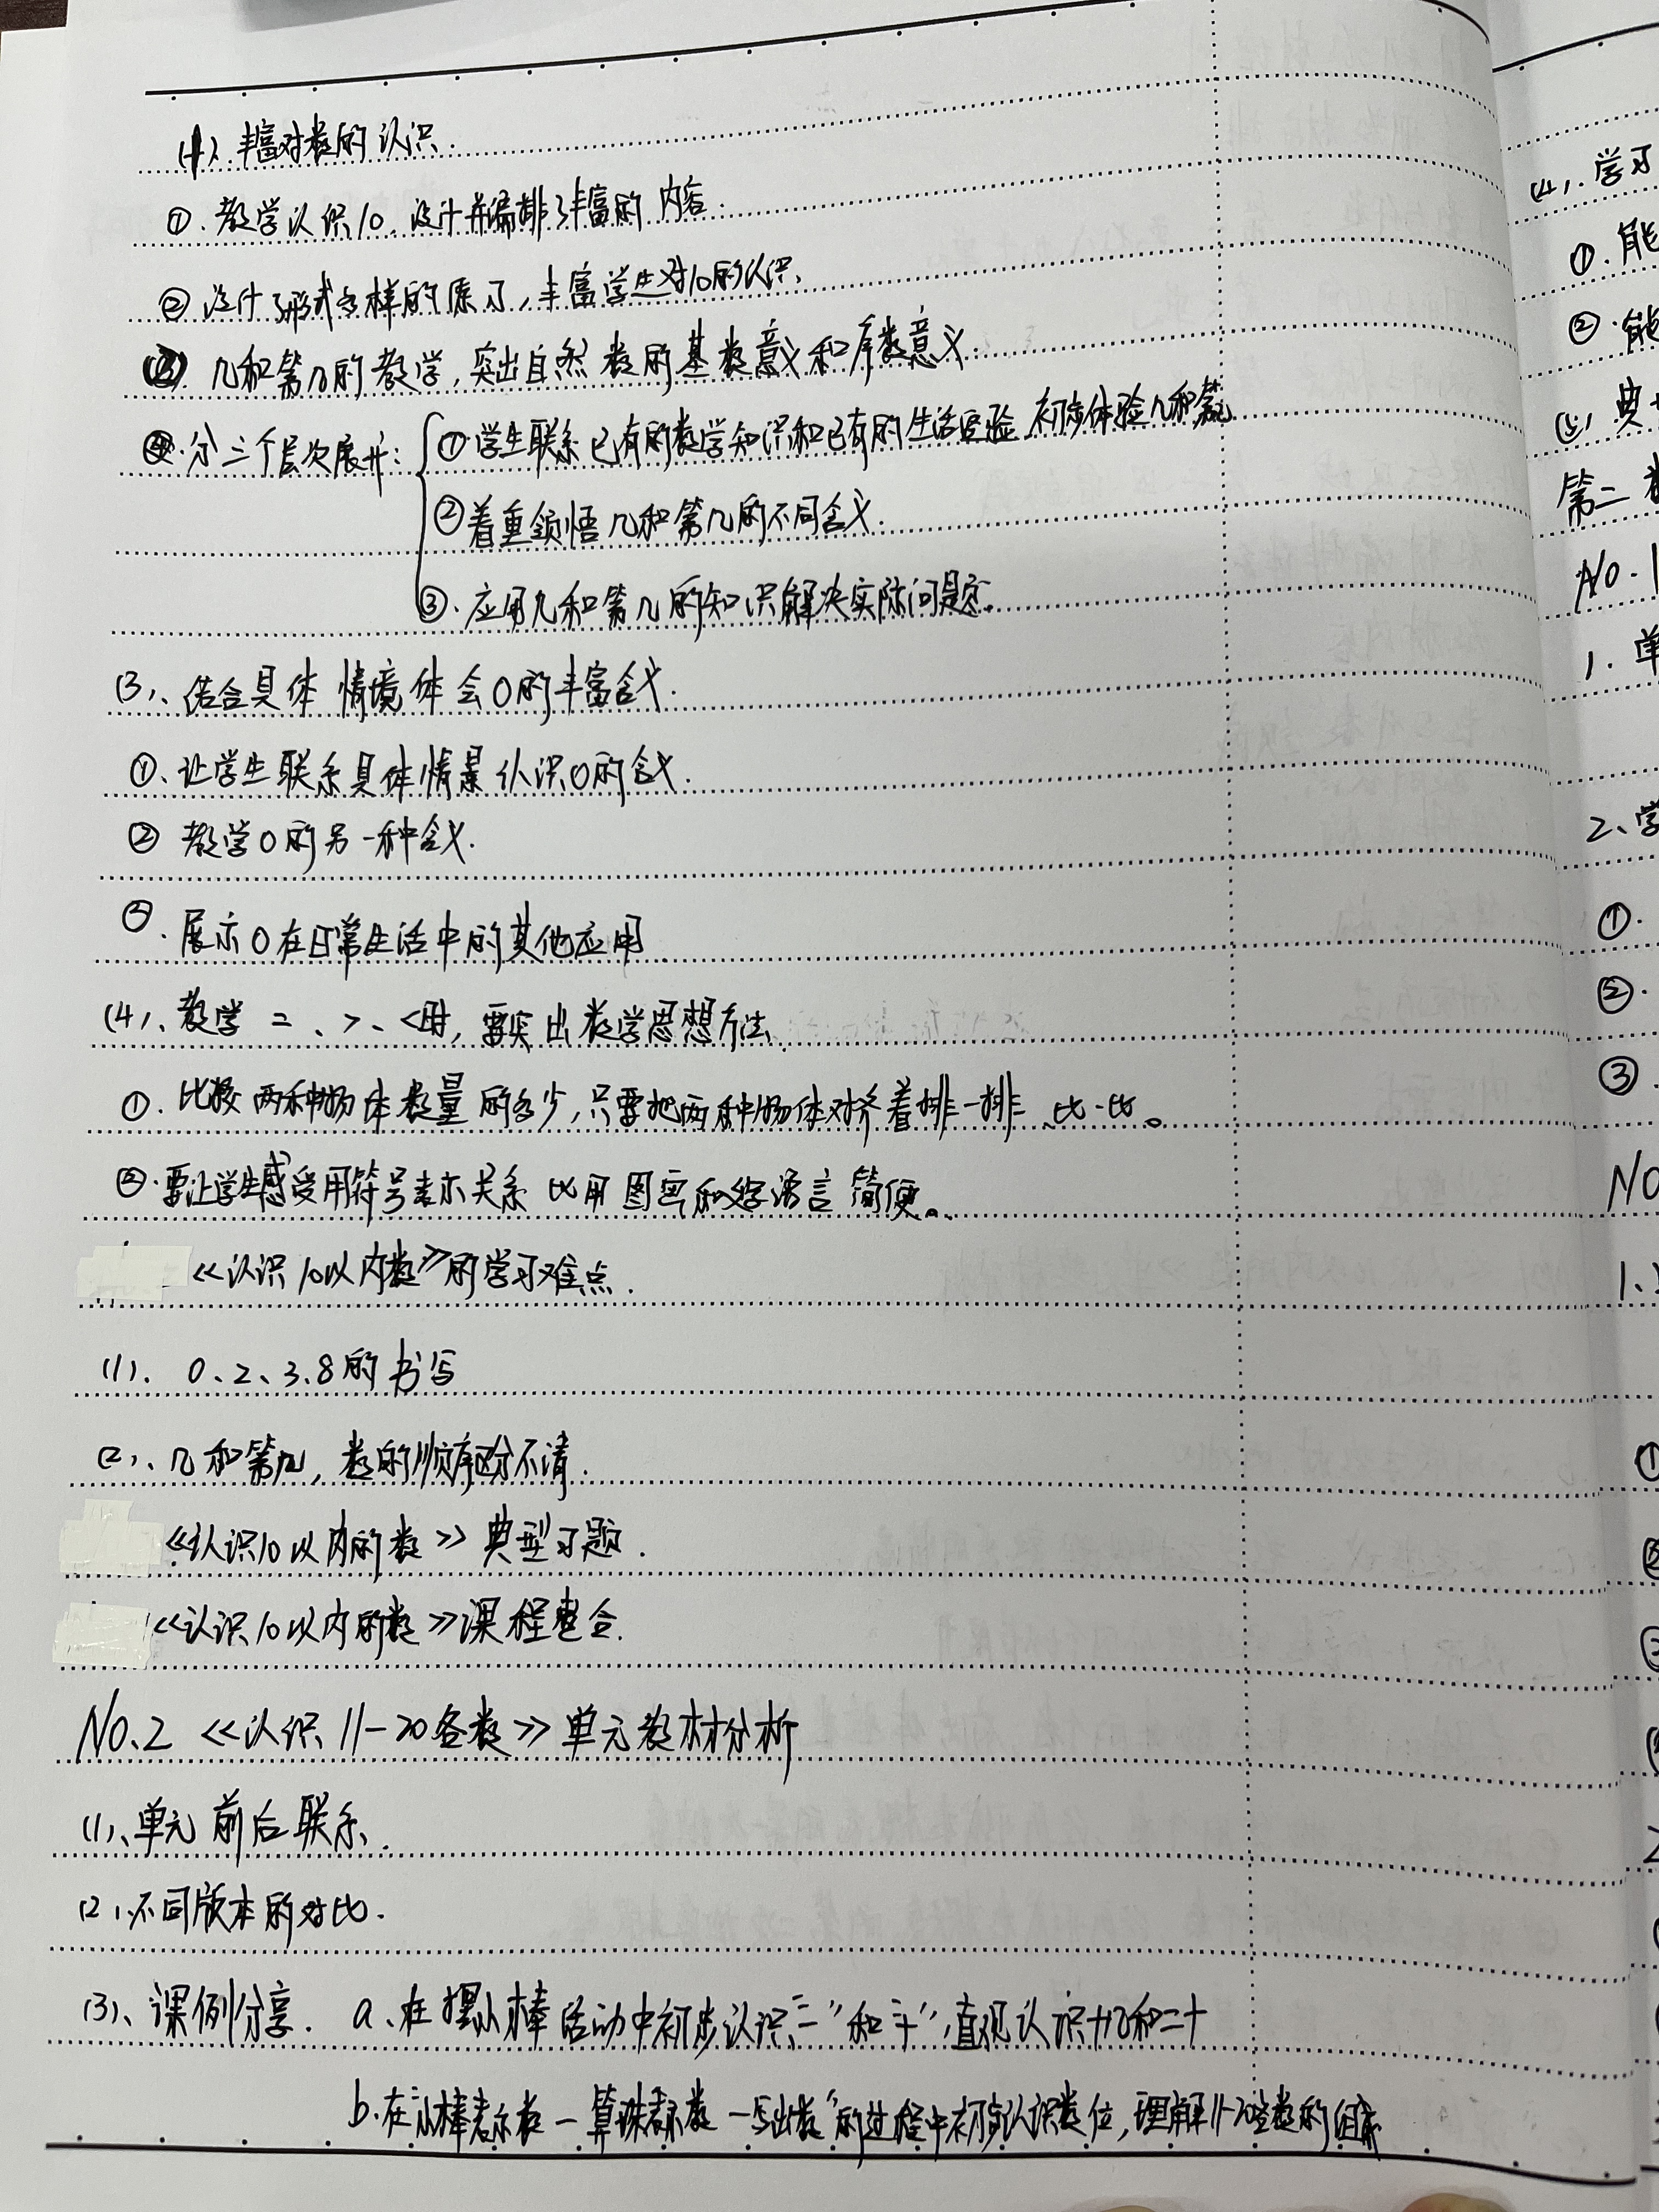 (1)、丰富对数的认识.
①.教学认识10.设计并编排了丰富的内容.
②设计了形式多样的练习,丰富学生对10的认识.
(2).几和第几的教学,突出自然数的基数意义和序数意义.
分三个层次展开: ①.学生联系已有的数学知识和已有的生活经验 初步体验几和第几
②着重领悟几和第几的不同含义.
③.应用几和第几的知识解决实际问题。
(3)、结合具体情境体会0的丰富含义.
①.让学生联系具体情景认识0的含义.
②教学0的另一种含义.
③.展示0在日常生活中的其他应用
(4)、教学 =、>、<时,要突出数学思想方法.
①.比较两种物体数量的多少,只要把两种物体对齐着排一排、比一比。
②.要让学生感受用符号表示关系比用图画和文字语言简便。
《认识10以内数》的学习难点.
(1). 0、2、3、8的书写
(2)、几和第几,数的顺序区分不清.
《认识10以内的数》典型习题.
《认识10以内的数》课程整合.
No.2 《认识11-20各数》单元教材分析
(1)、单元前后联系.
(2)、不同版本的对比.
(3)、课例分享. a、在摆小棒活动中初步认识"一"和"十",直观认识十几和二十
b.在"小棒表示数—算珠表示数—写出数"的过程中初步认识数位,理解11-20各数的组成
(4).学习
①.能
②.能
(5)典
第二
No.1
1.单
2、学
①.
②.
③.
No
1、
①
②
③